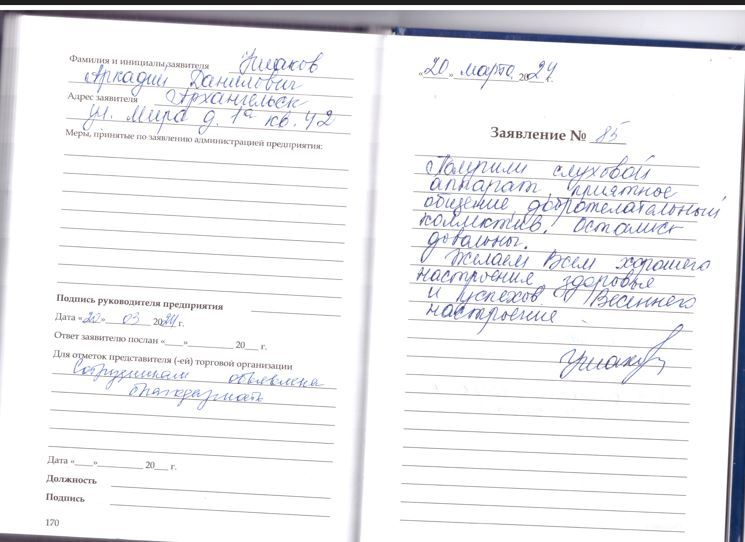 Фамилия и инициалы заявителя Ушаков
Аркадий Данилович
Адрес заявителя Архангельск
ул. Мира д. 1а кв. 42
Меры, принятые по заявлению администрацией предприятия:
Подпись руководителя предприятия
Дата «20» 03 2024 г.
Ответ заявителю послан «___»__________ 20___ г.
Для отметок представителя (-ей) торговой организации
Сотрудникам объявлена
благодарность
Дата «___»__________ 20___ г.
Должность
Подпись
170
«20» марта 2024 г.
Заявление № 85
Получили слуховой
аппарат, приятное
общение доброжелательный
коллектив. Остались
довольны.
Желаем Всем хорошего
настроения здоровья
и успехов Весеннего
настроение
Ушаков